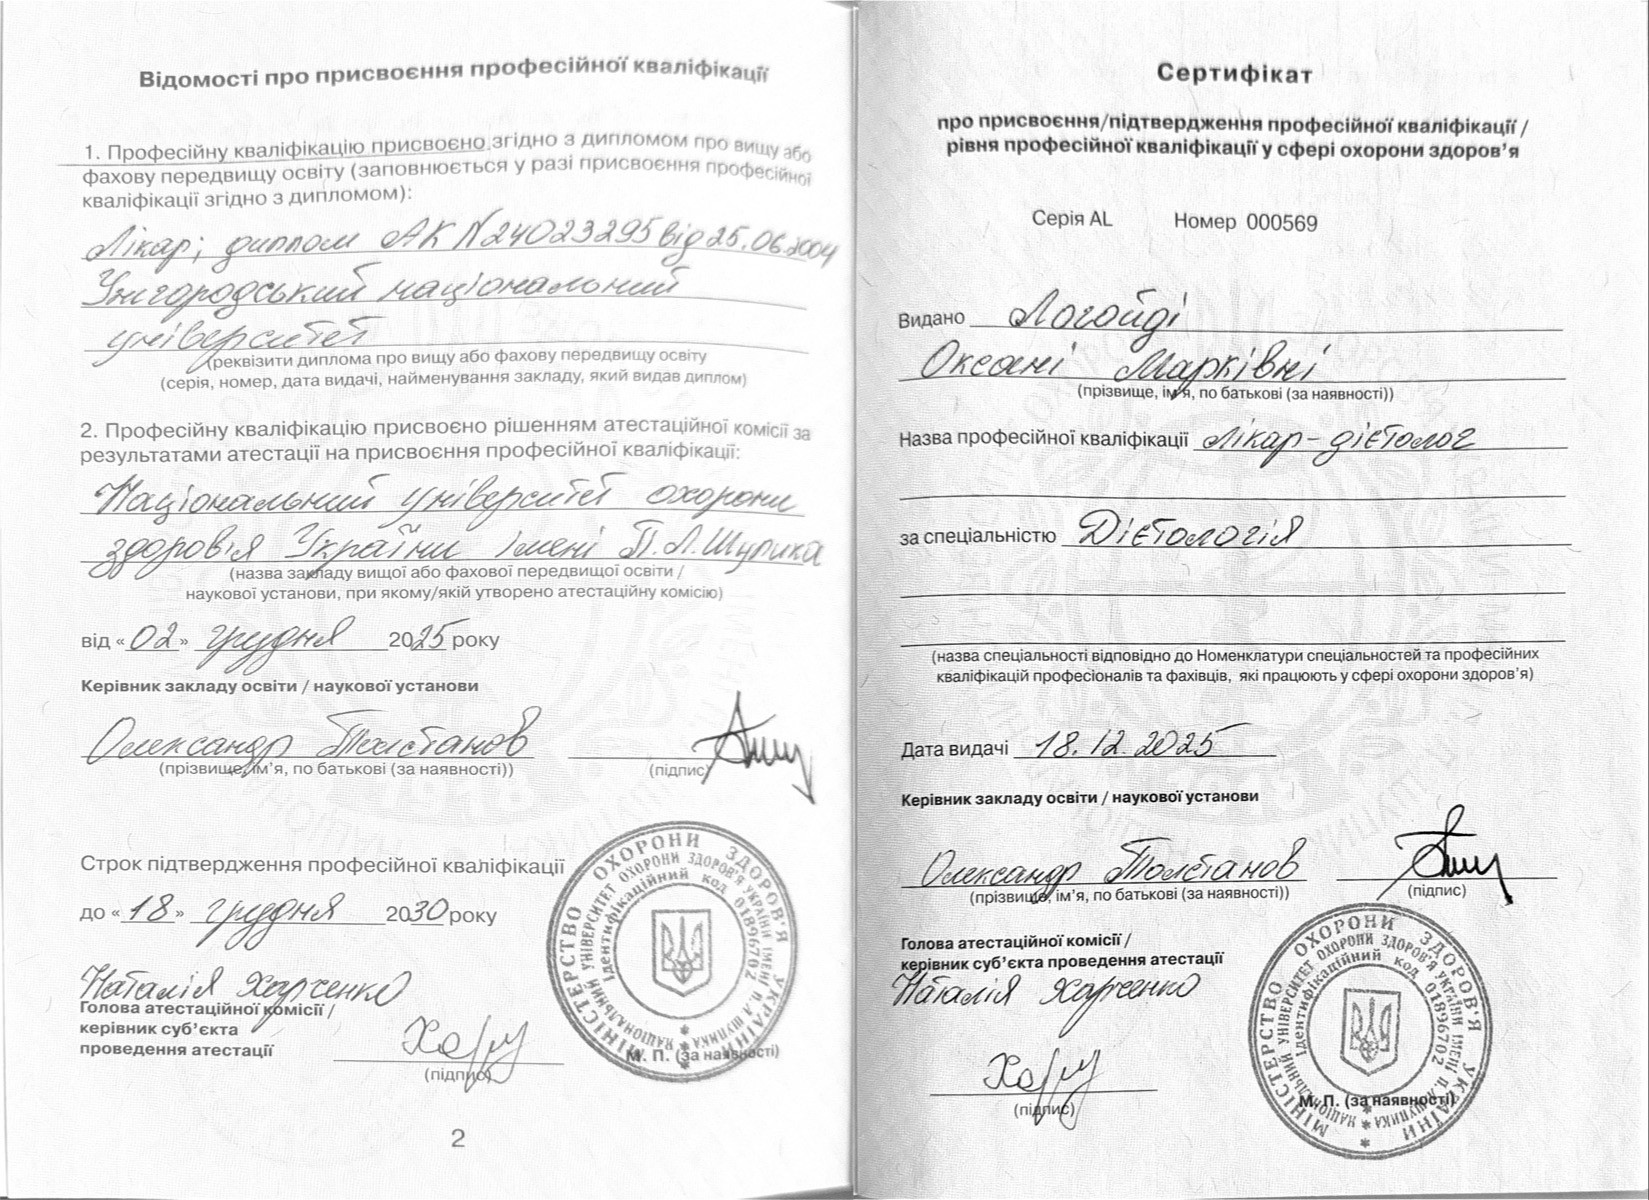 Відомості про присвоєння професійної кваліфікації
1. Професійну кваліфікацію присвоєно згідно з дипломом про вищу або
фахову передвищу освіту (заповнюється у разі присвоєння професійної
кваліфікації згідно з дипломом):
Лікар; диплом АК №24023295 від 25.06.2004
Ужгородський національний
університет
(реквізити диплома про вищу або фахову передвищу освіту
(серія, номер, дата видачі, найменування закладу, який видав диплом)
2. Професійну кваліфікацію присвоєно рішенням атестаційної комісії за
результатами атестації на присвоєння професійної кваліфікації:
Національний університет охорони
здоров'я України імені П.Л.Шупика
(назва закладу вищої або фахової передвищої освіти /
наукової установи, при якому/якій утворено атестаційну комісію)
від «02» грудня 2025 року
Керівник закладу освіти / наукової установи
Олександр Толстанов
(прізвище, ім’я, по батькові (за наявності))
(підпис)
Строк підтвердження професійної кваліфікації
до «18» грудня 2030 року
Наталія Харченко
Голова атестаційної комісії /
керівник суб’єкта
проведення атестації
(підпис)
МІНІСТЕРСТВО ОХОРОНИ ЗДОРОВ'Я УКРАЇНИ
НАЦІОНАЛЬНИЙ УНІВЕРСИТЕТ ОХОРОНИ ЗДОРОВ'Я УКРАЇНИ ІМЕНІ П.Л.ШУПИКА
Ідентифікаційний код 01896702
М. П. (за наявності)
2
Сертифікат
про присвоєння/підтвердження професійної кваліфікації /
рівня професійної кваліфікації у сфері охорони здоров’я
Серія AL Номер 000569
Видано Логойді
Оксані Марківні
(прізвище, ім’я, по батькові (за наявності))
Назва професійної кваліфікації лікар-дієтолог
за спеціальністю Дієтологія
(назва спеціальності відповідно до Номенклатури спеціальностей та професійних
кваліфікацій професіоналів та фахівців, які працюють у сфері охорони здоров’я)
Дата видачі 18.12.2025
Керівник закладу освіти / наукової установи
Олександр Толстанов
(прізвище, ім’я, по батькові (за наявності))
(підпис)
Голова атестаційної комісії /
керівник суб’єкта проведення атестації
Наталія Харченко
(підпис)
МІНІСТЕРСТВО ОХОРОНИ ЗДОРОВ'Я УКРАЇНИ
НАЦІОНАЛЬНИЙ УНІВЕРСИТЕТ ОХОРОНИ ЗДОРОВ'Я УКРАЇНИ ІМЕНІ П.Л.ШУПИКА
Ідентифікаційний код 01896702
М. П. (за наявності)